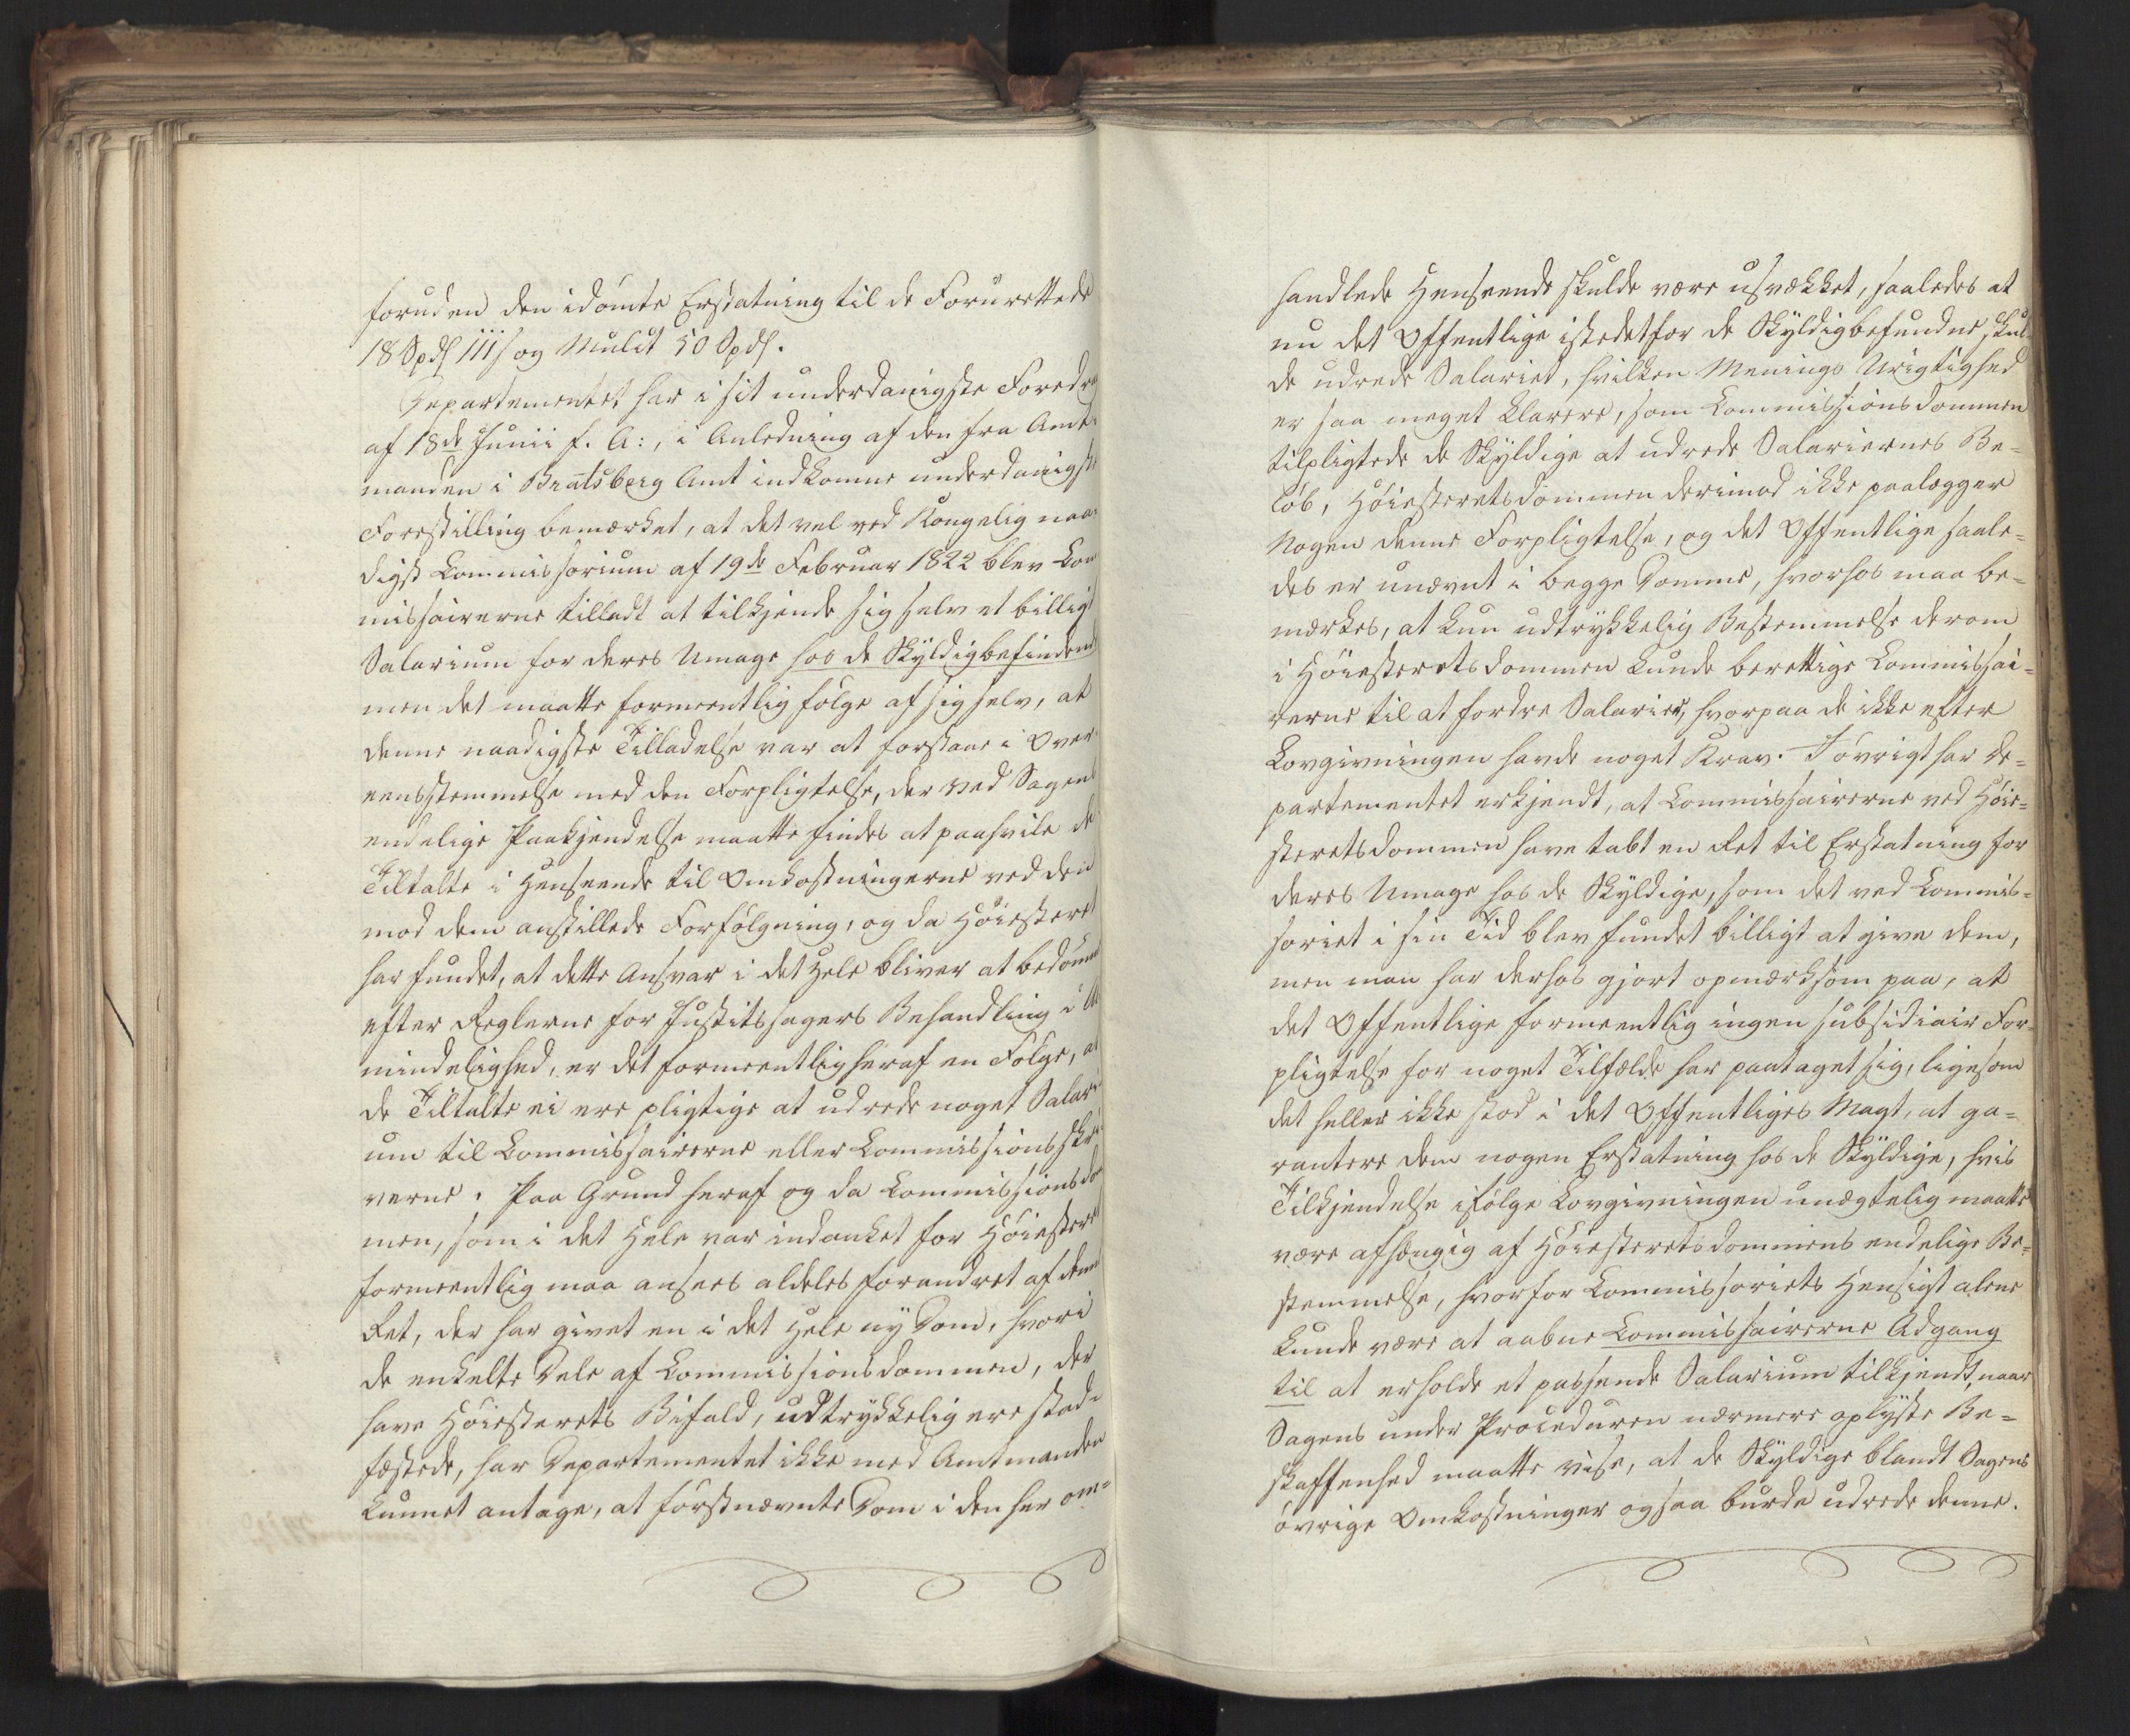 foruden den idømte Erstatning til de Forurettede
18 Spd 111 s og Mulct 50 Spd.
Departementet har i sit underdanigste Foredrag
af 18de Junii f. A:, i Anledning af den fra Amt-
manden i Bratsberg Amt indkomne underdanigste
Forestilling bemærket, at det vel ved Kongelig naa-
digst Commissorium af 19de Februar 1822 blev Com
missairerne tilladt at tilkjende sig selv et billigt
Salarium for deres Umage hos de Skyldigbefindend
men det maatte formeentlig følge af sig selv, at
denne naadigste Tilladelse var at forstaae i Over-
eensstemmelse med den Forpligtelse, der ved Sagens
endelige Paakjendelse maatte findes at paahvile de
Tiltalte i Henseende til Omkostningerne ved den
mod dem anstillede Forfølgning, og da Høiesteret
har fundet, at dette Ansvar i det Hele bliver at bedømme
efter Reglerne for Justitssagers Behandling i Al
mindelighed, er det formeentlig heraf en Følge, at
de Tiltalte ei ere pligtige at udrede noget Salari
um til Commissairerne eller Commissionsskri
verne. Paa Grund heraf og da Commissionsdom
men, som i det Hele var indanket for Høiesteret
formeentlig maa ansees aldeles forandret af denne
Ret, der har givet en i det Hele ny Dom, hvori
de enkelte Dele af Commissionsdommen, der
have Høiesterets Bifald, udtrykkelig ere stad-
fæstede, har Departementet ikke med Amtmanden
kunnet antage, at førstnævnte Dom i den her om-
handlede Henseende skulde være usvækket, saaledes at
nu det Offentlige istedetfor de Skyldigbefundne skul
de udrede Salariet, hvilken Menings Urigtighed
er saa meget klarere, som Commissionsdommen
tilpligtede de Skyldige at udrede Salariernes Be-
løb, Høiesteretsdommen derimod ikke paalægger
Nogen denne Forpligtelse, og det Offentlige saale-
des er unævnt i begge Domme, hvorhos maa be-
mærkes, at kun udtrykkelig Bestemmelse derom
i Høiesteretsdommen kunde berettige Commissai-
rerne til at fordre Salarier, hvorpaa de ikke efter
Lovgivningen havde noget Krav. Iøvrigt har De-
partementet erkjendt, at Commissairerne ved Høie-
steretsdommen have tabt en Ret til Erstatning for
deres Umage hos de Skyldige, som det ved Commis-
soriet i sin Tid blev fundet billigt at give dem,
men man har derhos gjort opmærksom paa, at
det Offentlige formeentlig ingen subsidiair For-
pligtelse for noget Tilfælde har paataget sig, ligesom
det heller ikke stod i det Offentliges Magt, at ga-
rantere dem nogen Erstatning hos de Skyldige, hvis
Tilkjendelse ifølge Lovgivningen unægtelig maatte
være afhængig af Høiesteretsdommens endelige Be-
stemmelse, hvorfor Commissoriets Hensigt alene
kunde være at aabne Commissairerne Adgang
til at erholde et passende Salarium tilkjendt, naar
Sagens under Proceduren nærmere oplyste Be-
skaffenhed maatte vise, at de Skyldige blandt Sagens
øvrige Omkostninger ogsaa burde udrede denne.